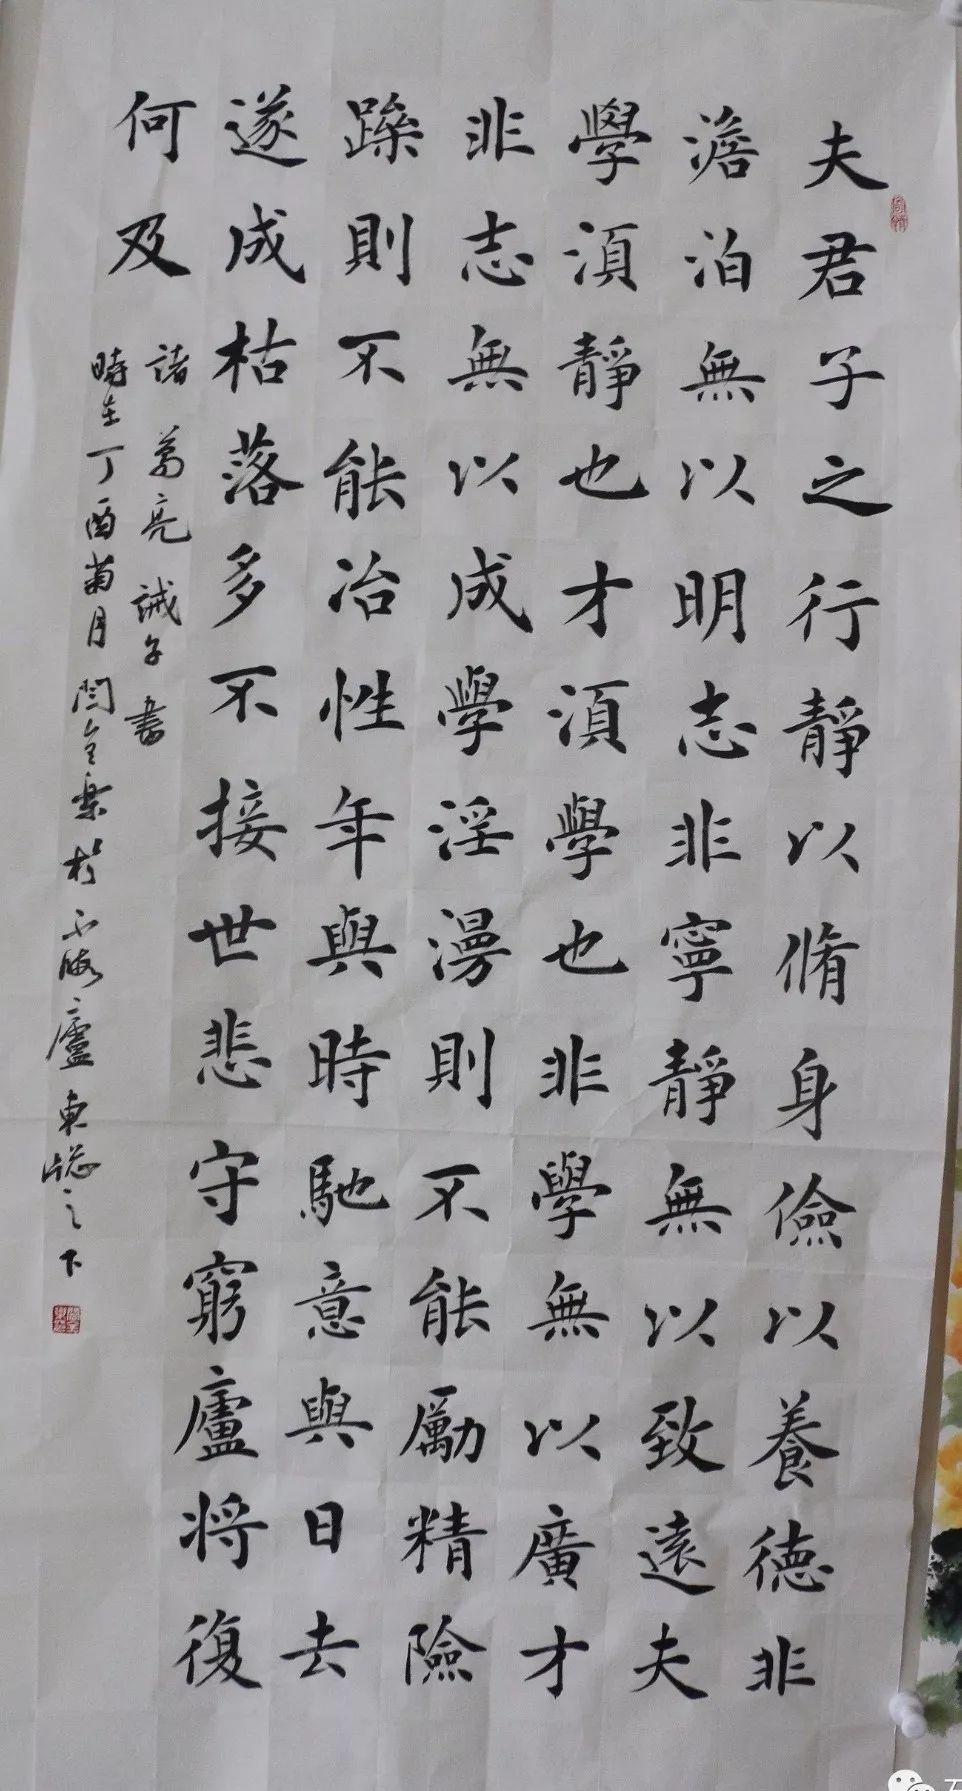 夫君子之行靜以脩身儉以養德非
澹泊無以明志非寧靜無以致遠夫
學須靜也才須學也非學無以廣才
非志無以成學淫漫則不能勵精險
躁則不能冶性年與時馳意與日去
遂成枯落多不接世悲守窮廬將復
何及
諸葛亮誡子書
時在丁酉菊月閆全樂於不晦廬東窓之下